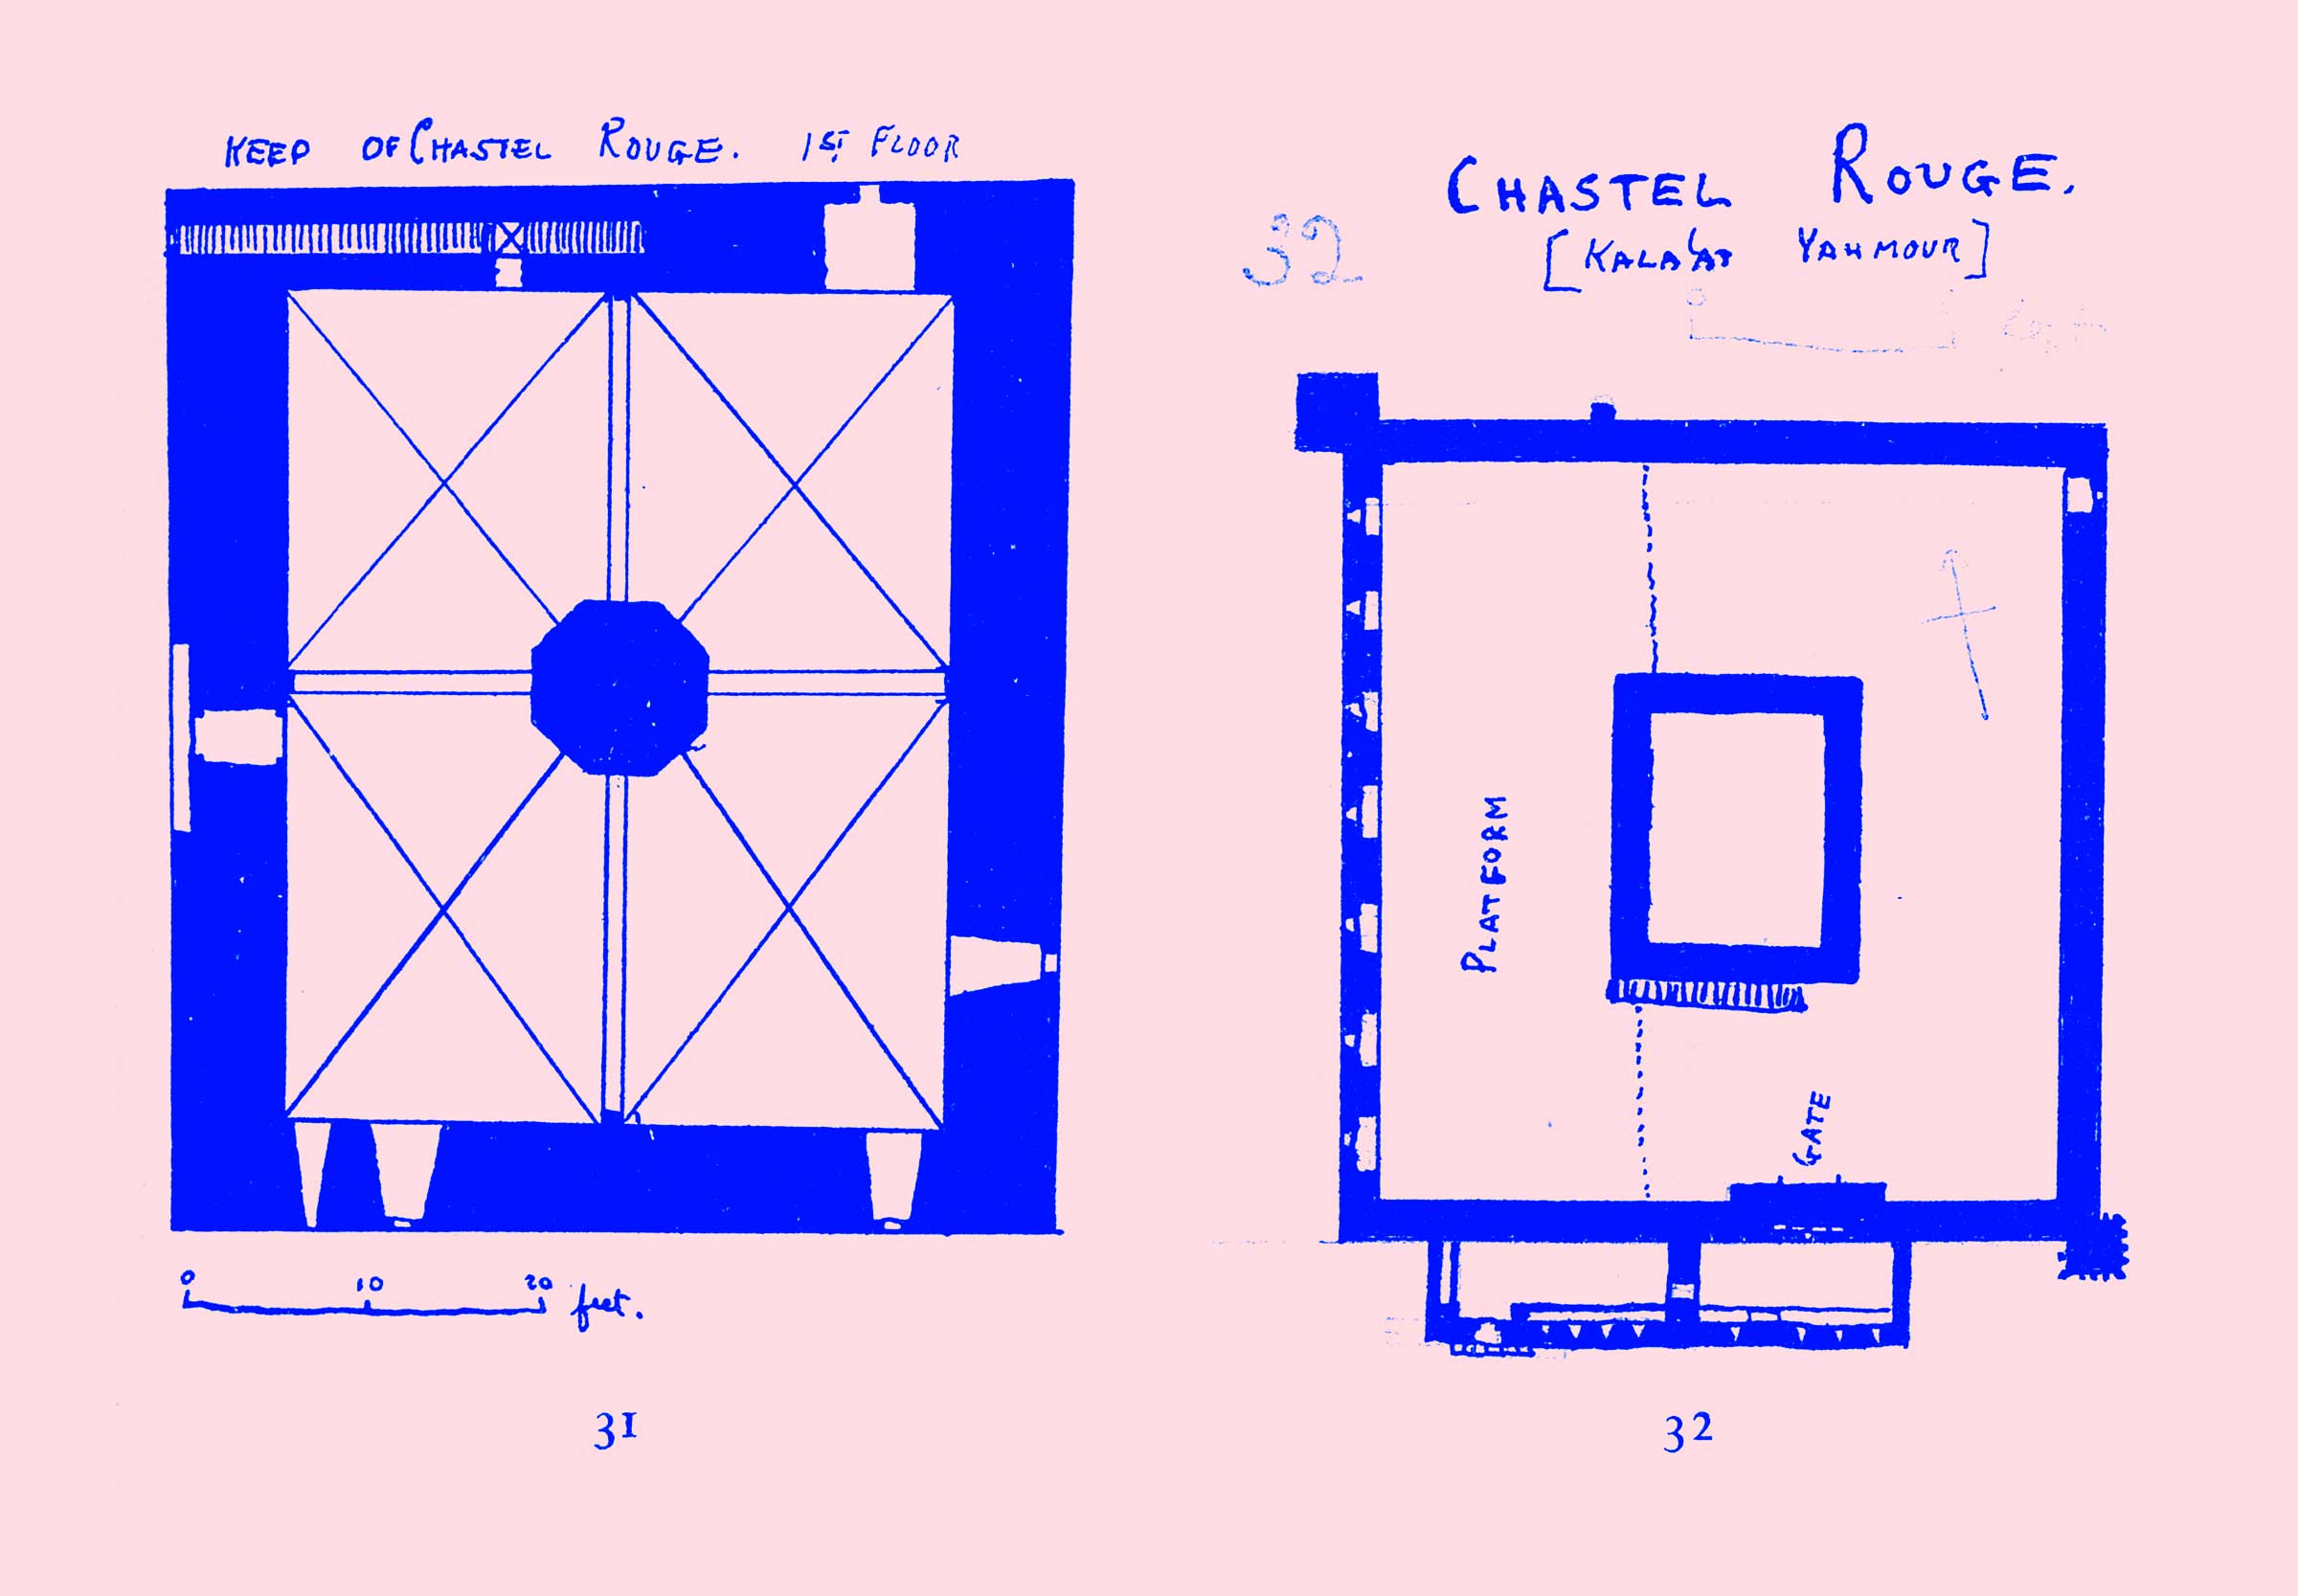 KEEP OF CHASTEL ROUGE. 1ST FLOOR
0 10 20 feet.
31
CHASTEL ROUGE.
[KALA'AT YAHMOUR]
32
0
PLATFORM
GATE
32